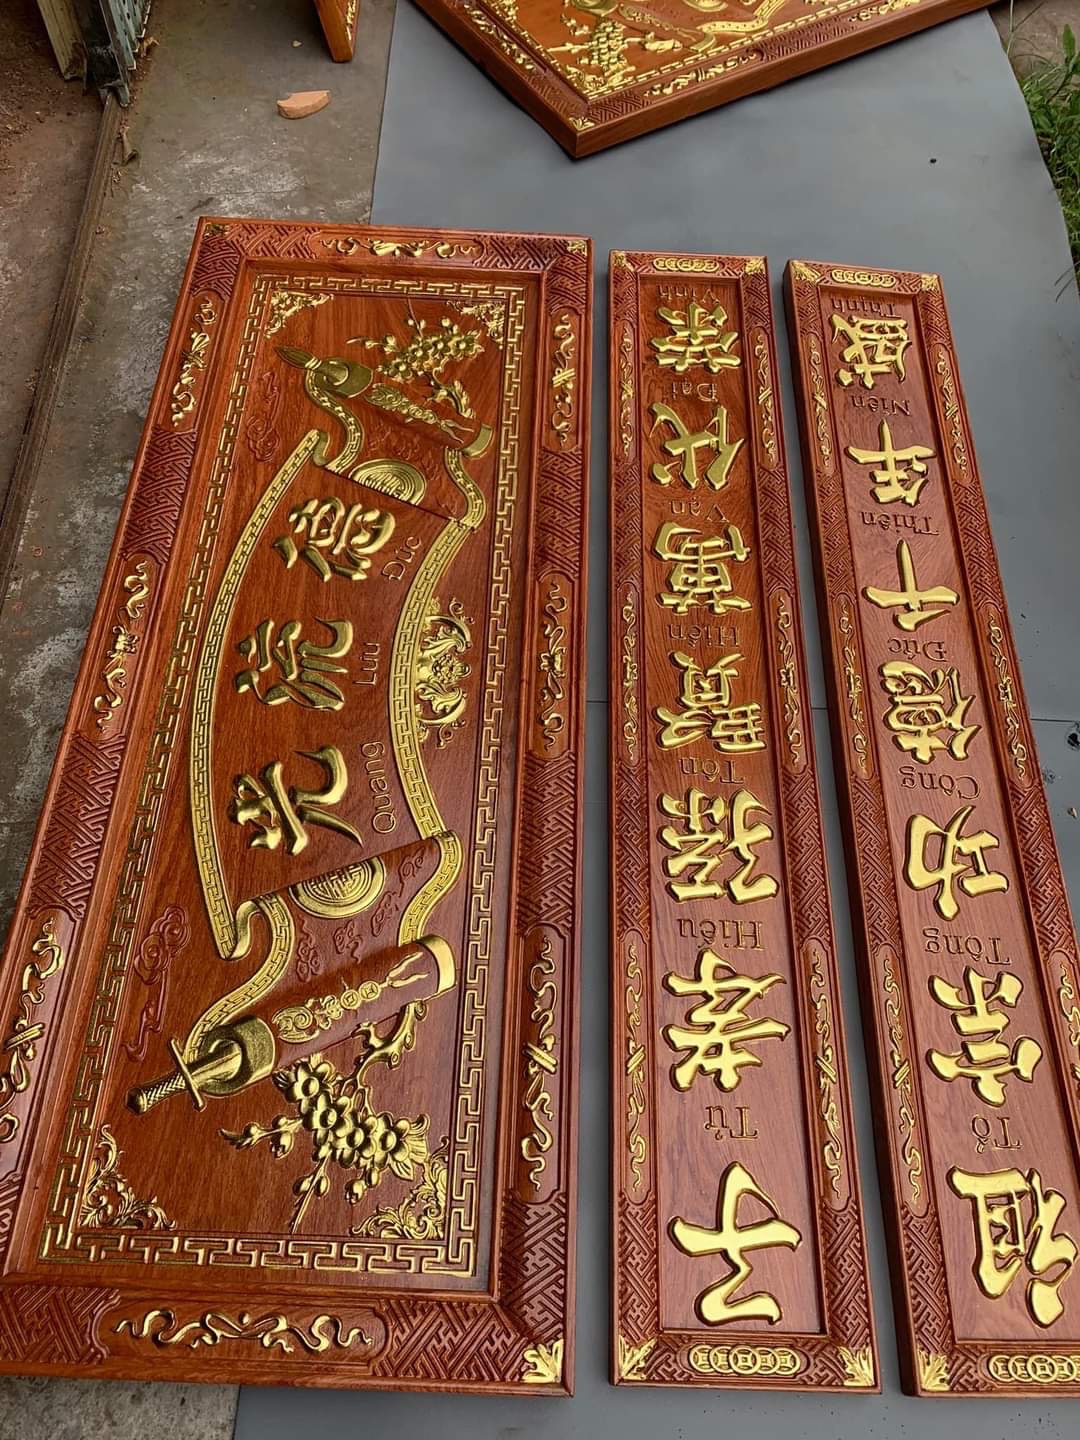 光流德
Quang Lưu Đức
祖
Tổ
宗
Tông
功
Công
德
Đức
千
Thiên
年
Niên
盛
Thịnh
子
Tử
孝
Hiếu
孫
Tôn
賢
Hiền
萬
Vạn
代
Đại
榮
Vinh